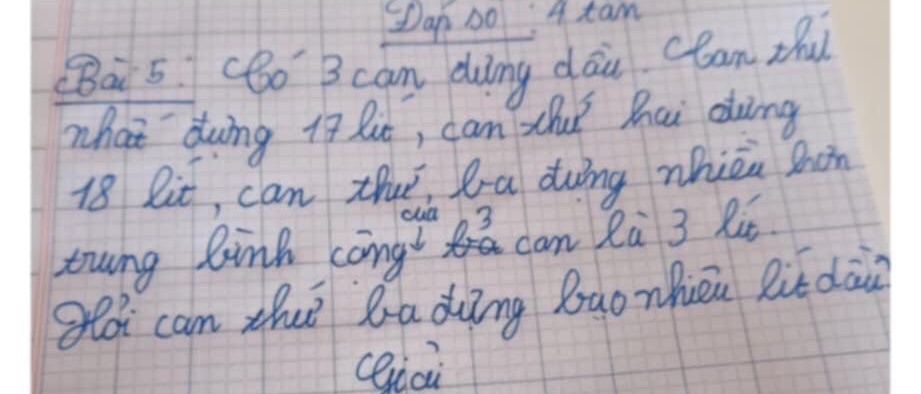 Đáp số : 4 tấn
Bài 5 : Có 3 can đựng dầu. Can thứ
nhất đựng 17 lít, can thứ hai đựng
18 lít, can thứ ba đựng nhiều hơn
trung bình cộng của 3 can là 3 lít.
Hỏi can thứ ba đựng bao nhiêu lít dầu?
Giải